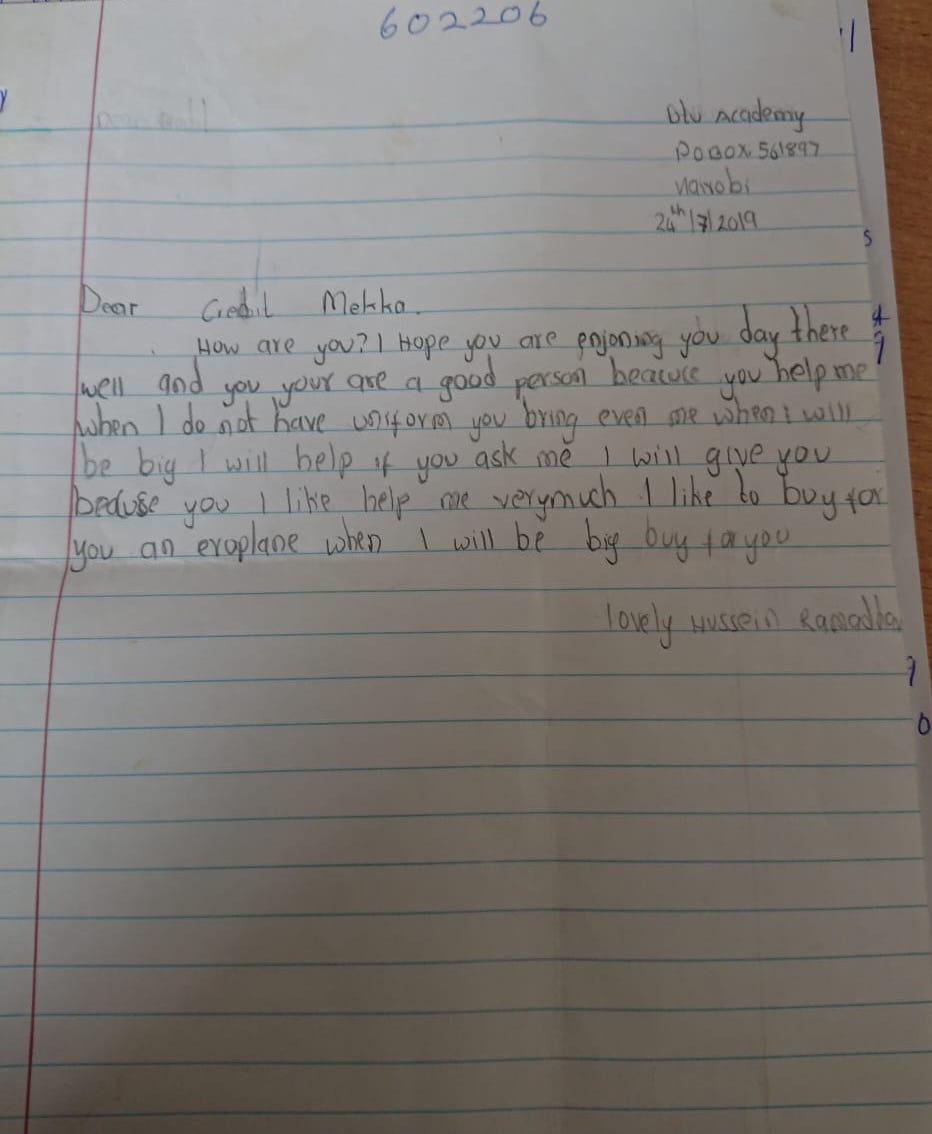 602206
Dlv Academy
PO BOX 561897
Nairobi
24th/7/2019
Dear Credil Mekka.
How are you? I Hope you are enjoning you day there
well and you your are a good person beacuce you help me
when I do not have uniform you bring even me when i will
be big I will help if you ask me I will give you
beduse you I like help me verymuch I like to buy for
you an eroplane when I will be big buy for you
lovely Hussein Ramadha